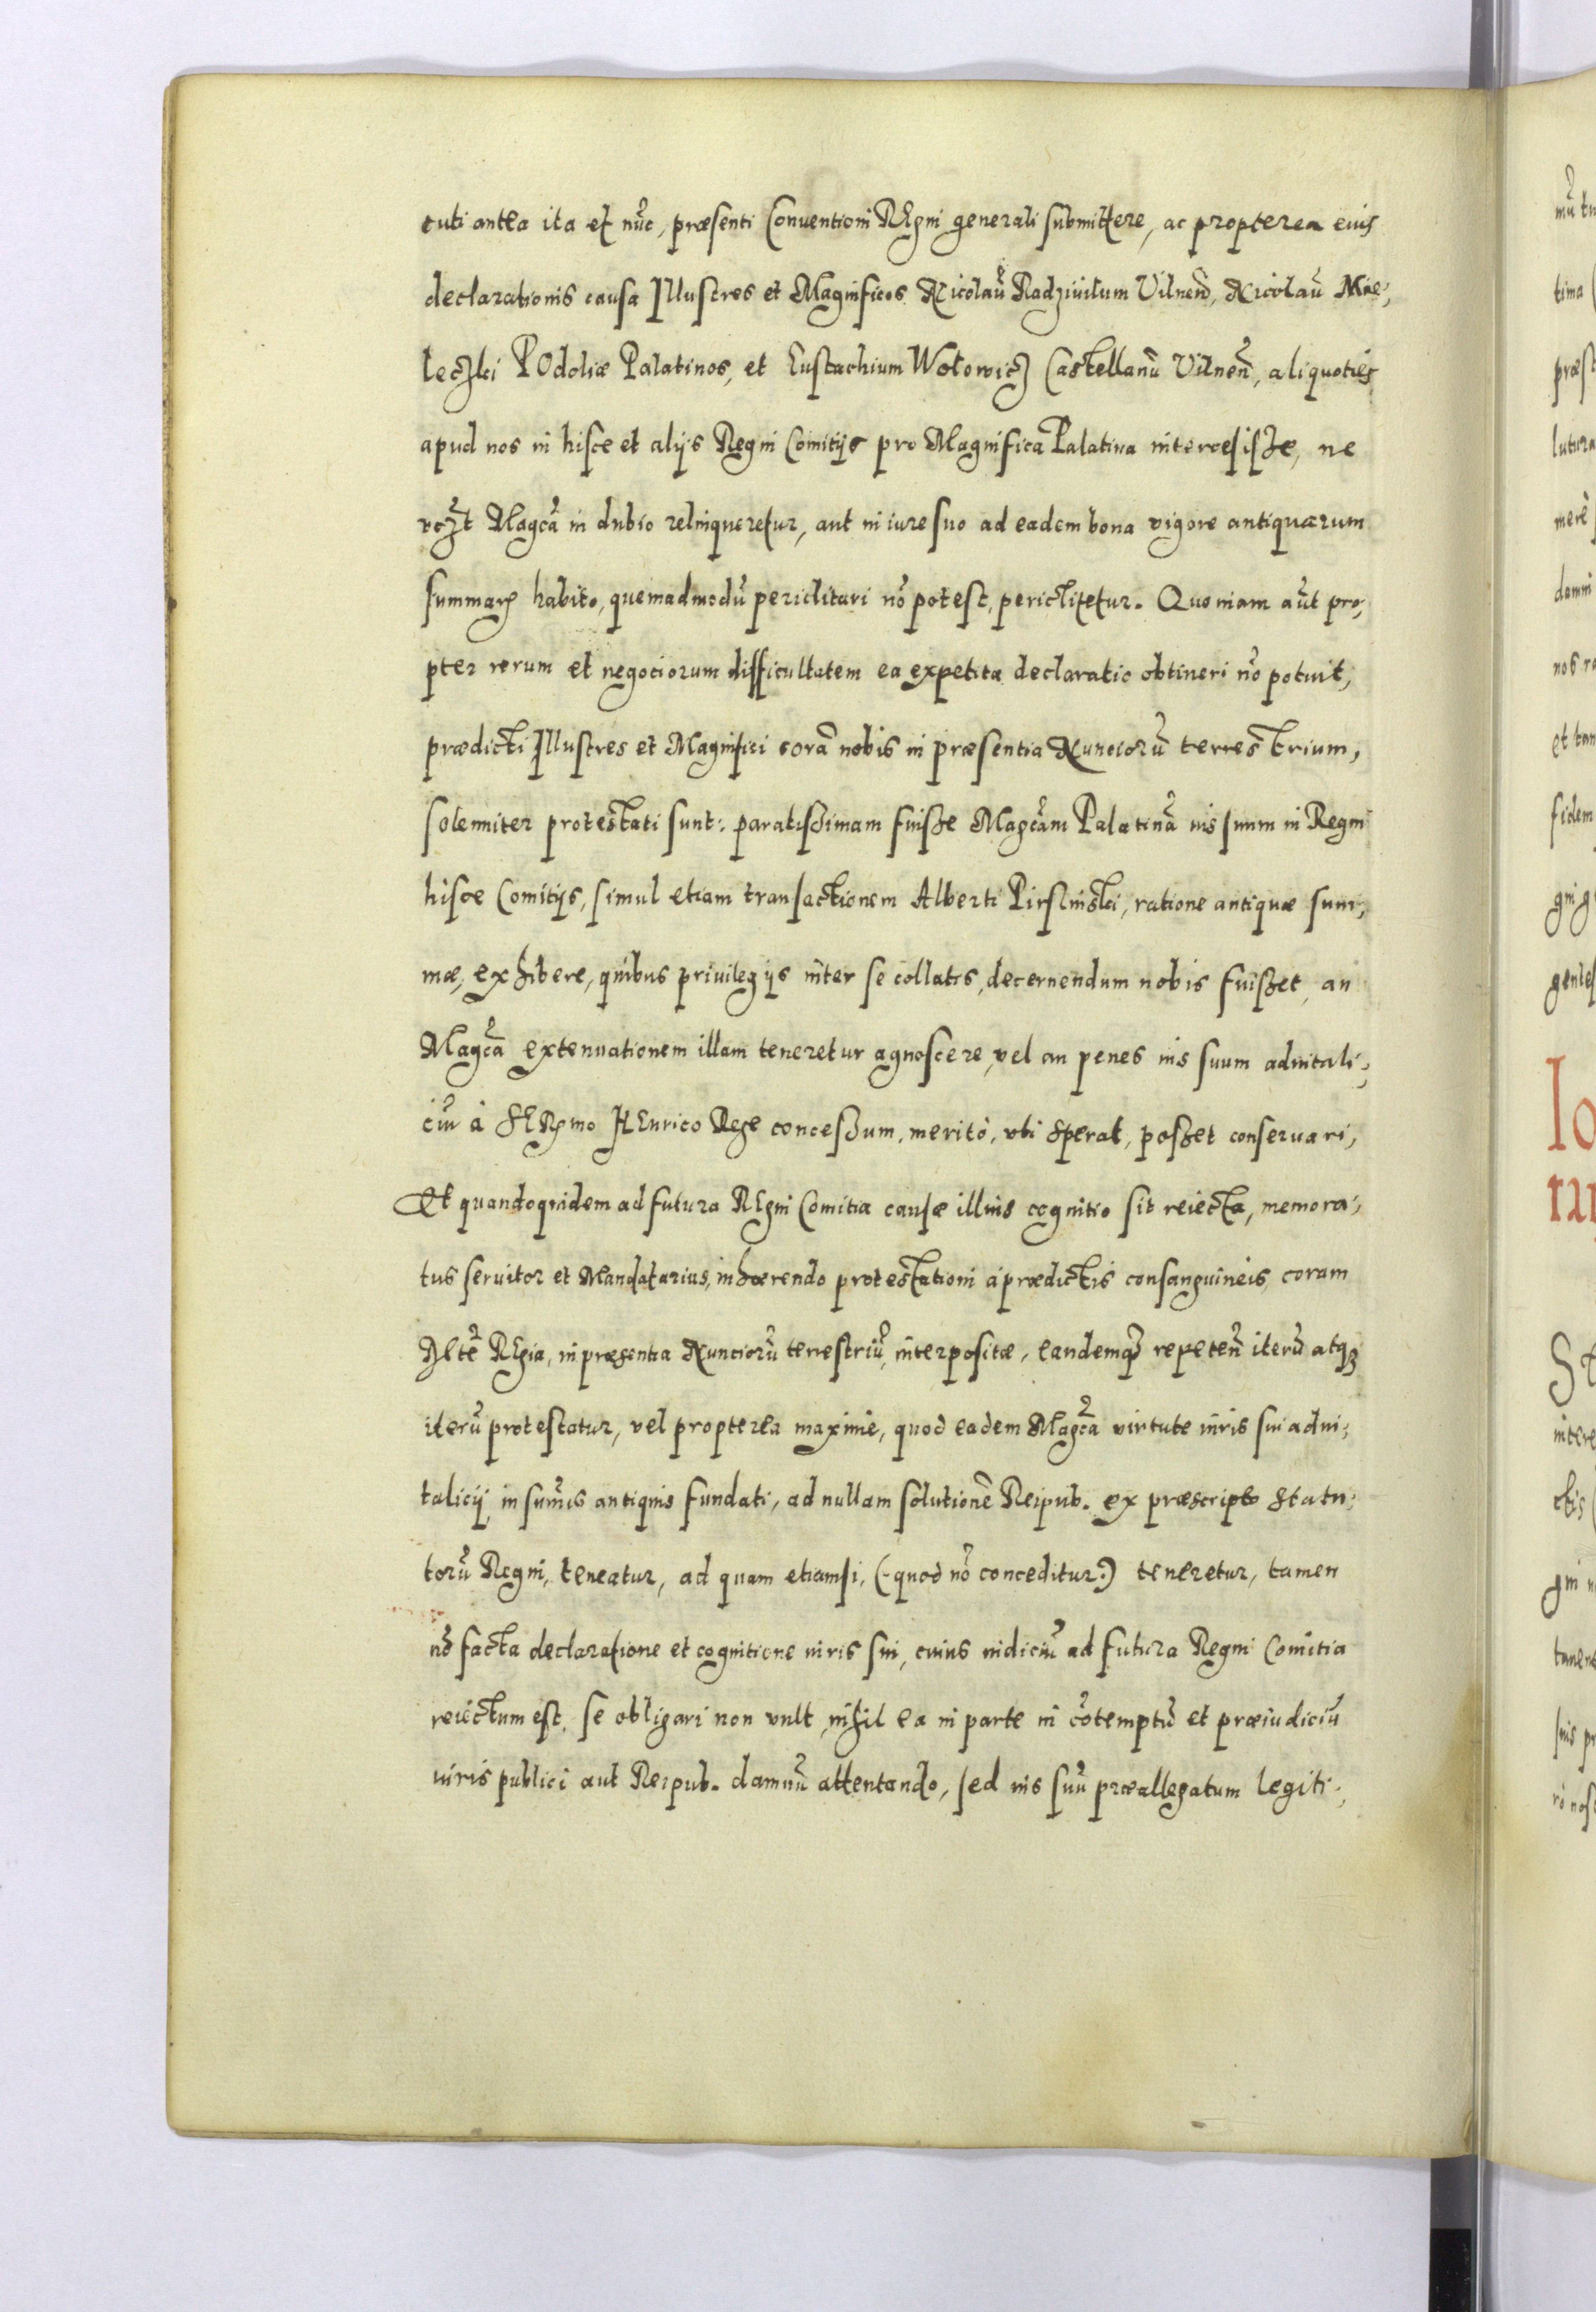 cuti antea ita et nũc, præsenti Conventioni REgni generali submittere, ac propterea eius
declarationis causa Illustres et Magnificos Nicolaũ Radziuilum Vilneñ, Nicolaũ Mie-,
leczki POdoliæ Palatinos, et Eustachium Wołowicz Castellanũ Vilneñ, aliquoties
apud nos in hisce et alijs Regni Comitijs pro Magnifica Palatina intercesisse, ne
Magcã in dubio relinqueretur, aut in iure suo ad eadem bona vigore antiquarum
summarꝝ habito, quemadmodũ periclitari nõ potest, periclitetur. Quoniam aũt pro,
pter rerum et negociorum difficultatem ea expetita declaratio obtineri nõ potuit,
prædicti Illustres et Magnifici corã nobis in præsentia Nunciorũ terrestrium,
solenniter protestati sunt: paratissimam fuisse Magcãm Palatinã ius suum in Regni
hisce Comitijs, simul etiam transactionem Alberti, ratione antiquæ sum,
mæ, exhibere, quibus priuilegijs inter se collatis, decernendum nobis fuisset, an
Magcã extenuationem illam teneretur agnoscere, vel an penes ius suum aduitali,
ciũ à SERꝝmo HEnrico Rege concessum, meritò, vti sperat, posset conseruari,
Et quandoquidem ad futura REgni Comitia causæ illius cognitio sit reiecta, memora,
tus seruitor et Mandatarius, inhærendo protestationi a prædictis consanguineis, coram
Mtẽ REgia, in præsentia Nunciorũ terrestriũ, interpositæ, eandemq repeteñ iterũ atqꝫ
iterũ protestatur, vel propterea maxime, quod eadem Magcã virtute iuris sui adui,
talicij, in sum̃is antiquis fundati, ad nullam solutionẽ Reipub. ex præscripto statu,
torũ Regni, teneatur, ad quam etiamsi, (quod nõ conceditur:) teneretur, tamen
nõ facta declaratione et cognitione iuris sui, cuius iudiciũ ad futura Regni Comitia
reiectum est, se obligari non vult, nihil ea in parte in cõtemptũ et præiudiciũ
iuris publici aut Reipub. damnũ attentando, sed ius suũ præallegatum legiti,